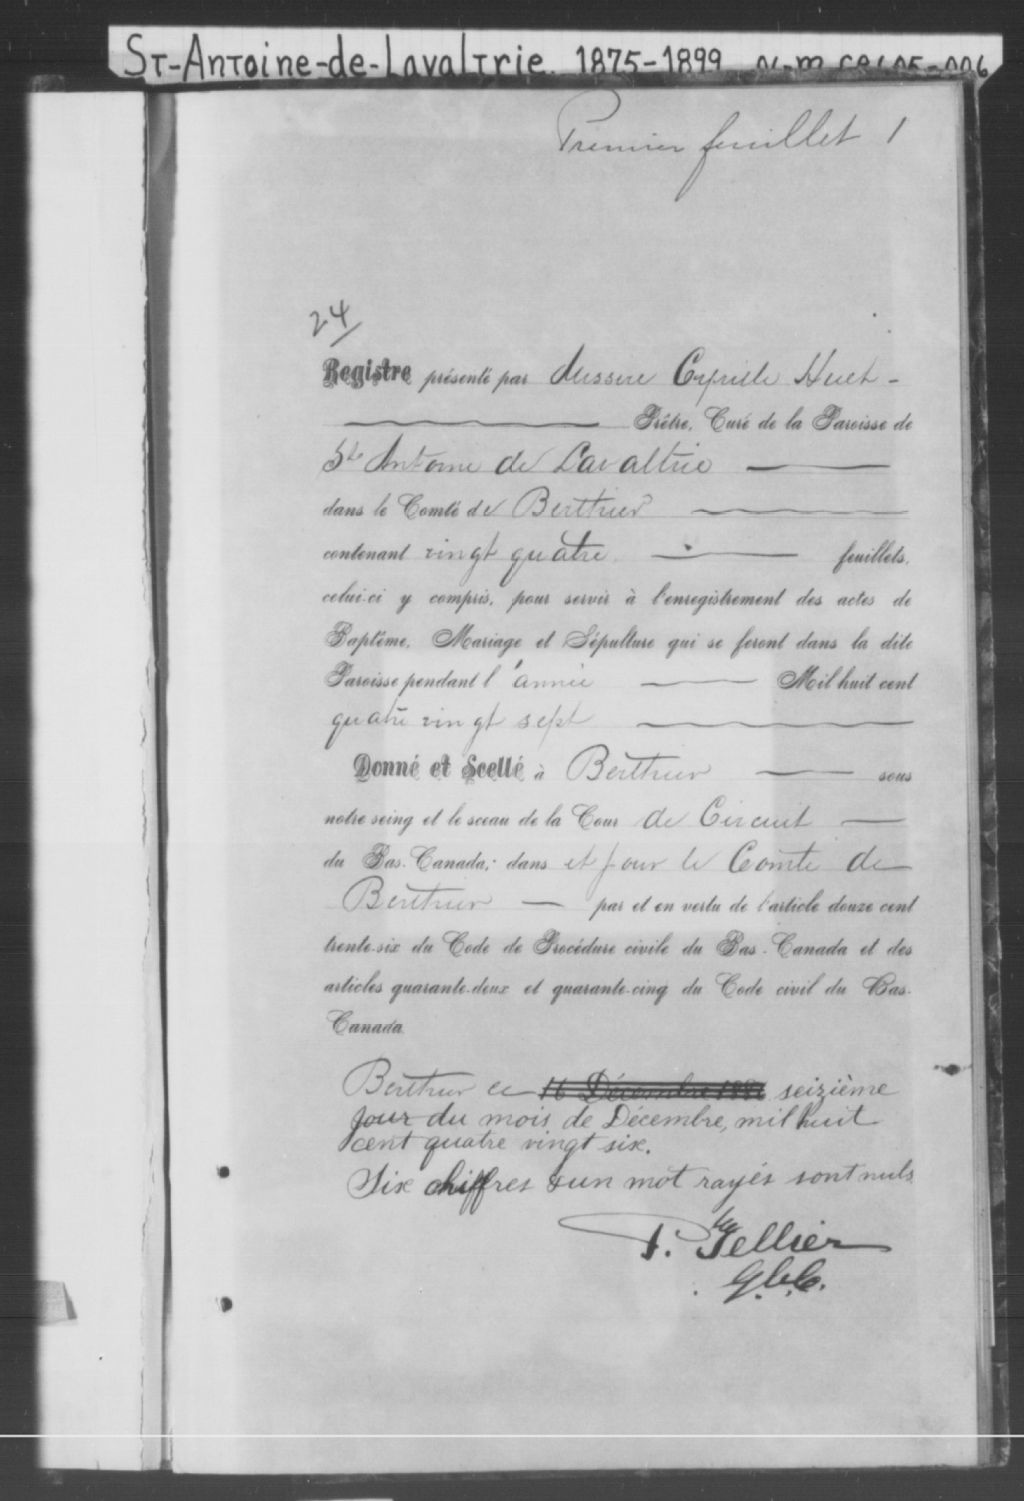 St-Antoine-de-Lavaltrie 1875-1899
Premier feuillet 1
24
Registre présenté par Messire Cyprille Huet -
Prêtre, Curé de la Paroisse de
St Antoine de Lavaltrie
dans le Comté de Berthier
contenant vingt quatre feuillets,
celui-ci y compris, pour servir à l'enregistrement des actes de
Baptême, Mariage et Sépulture qui se feront dans la dite
Paroisse pendant l'année Mil huit cent
quatre vingt sept
Donné et Scellé à Berthier sous
notre seing et le sceau de la Cour de Circuit
du Bas-Canada; dans et pour le Comté de
Berthier par et en vertu de l'article douze cent
trente-six du Code de Procédure civile du Bas-Canada et des
articles quarante-deux et quarante-cinq du Code civil du Bas-
Canada
Berthier ce 16 Décembre seizième
jour du mois de Décembre, mil huit
cent quatre vingt six.
Six chiffres & un mot rayés sont nuls
P. Tellier
G.C.C.